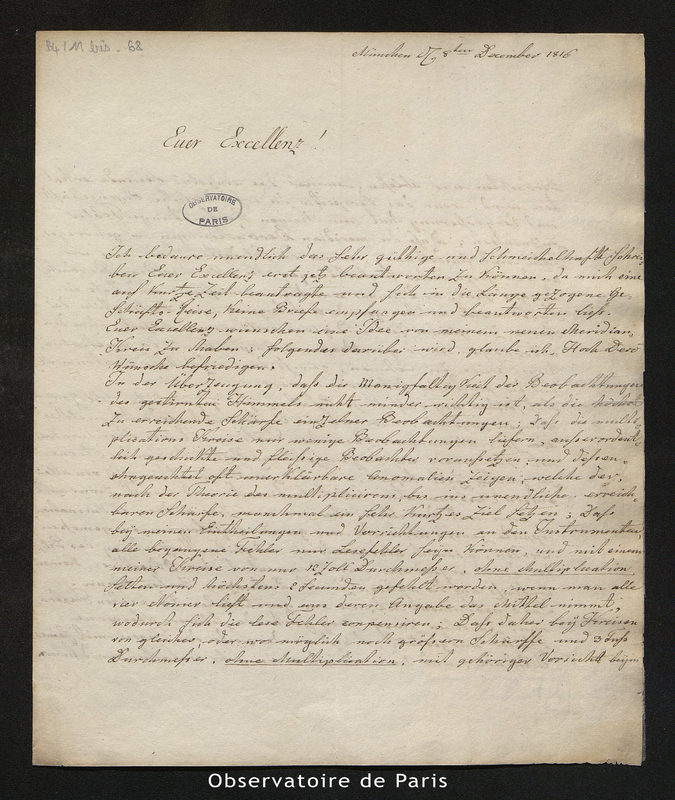 B4/M bis - 68
München d. 8ten December 1816
Euer Excellenz!
OBSERVATOIRE
DE
PARIS
Ich bedaure unendlich das sehr güthige und Schmeichelhafte Schrei-
ben Euer Excellenz erst jetz beantworten zu können, da mich eine
auf kurtze Zeit beantragte und sich in die Länge gezogene Ge-
schäfts-Reise, keine Briefe empfangen und beantworten ließ.
Euer Excellenz wünschen eine Idee von meinem neuen Meridian-
Kreis zu haben; folgendes darüber wird, glaube ich, Hoch Dero
Wünsche befriedigen.
In der Überzeugung, daß die Manigfaltigkeit der Beobachtungen
des gestirnten Himmels nicht minder wichtig ist, als die höchst
zu erreichende Schärfe einzelner Beobachtungen; Daß die multi-
plications Kreise nur wenige Beobachtungen liefern, ausserordent-
lich geschickte und fleissige Beobachter voraussetzen, und dessen
ohngeachtet oft unerklärbare Anomalien zeigen, welche der,
nach der Theorie des multiplicirens, bis ins unendliche erreich-
baren Schärfe, manchmal ein sehr kurtzes Ziel setzen; Daß
bey meinen Eintheilungen und Vorrichtungen an den Instrumenten,
alle begangene Fehler nur Lesefehler seyn können, und mit einem
meiner Kreise von nur 12 Zoll Durchmesser, ohne Multiplication,
selten und höchstens 2 Secunden gefehlt werden, wenn man alle
vier Nonier ließt und aus deren Angabe das Mittel nimmt,
wodurch sich die lese Fehler compensiren; Daß daher bey Kreisen
von gleicher, oder wo möglich noch größern Schärffe und 3 Fuß
Durchmesser, ohne Multiplication, mit gehöriger Vorsicht beym
Observatoire de Paris